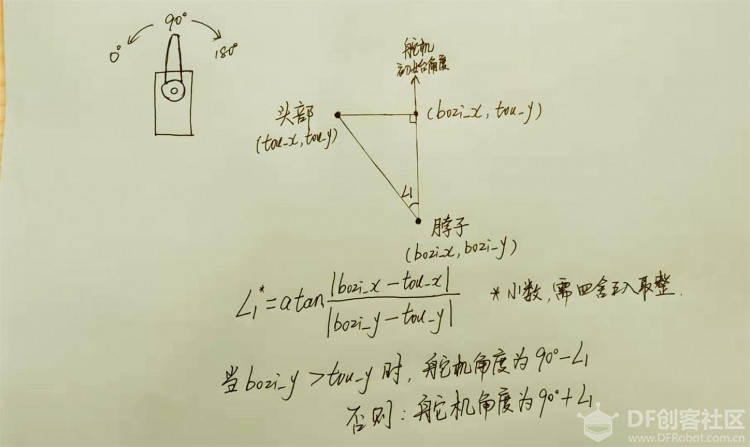 90°
0°
180°
舵机
初始角度
头部
(tou_x, tou_y)
(bozi_x, tou_y)
∠1
脖子
(bozi_x, bozi_y)
∠1* = atan |bozi_x - tou_x| / |bozi_y - tou_y|
*小数,需四舍五入取整.
当bozi_y > tou_y时, 舵机角度为90°-∠1
否则: 舵机角度为90°+∠1
DF创客社区
www.DFRobot.com.cn